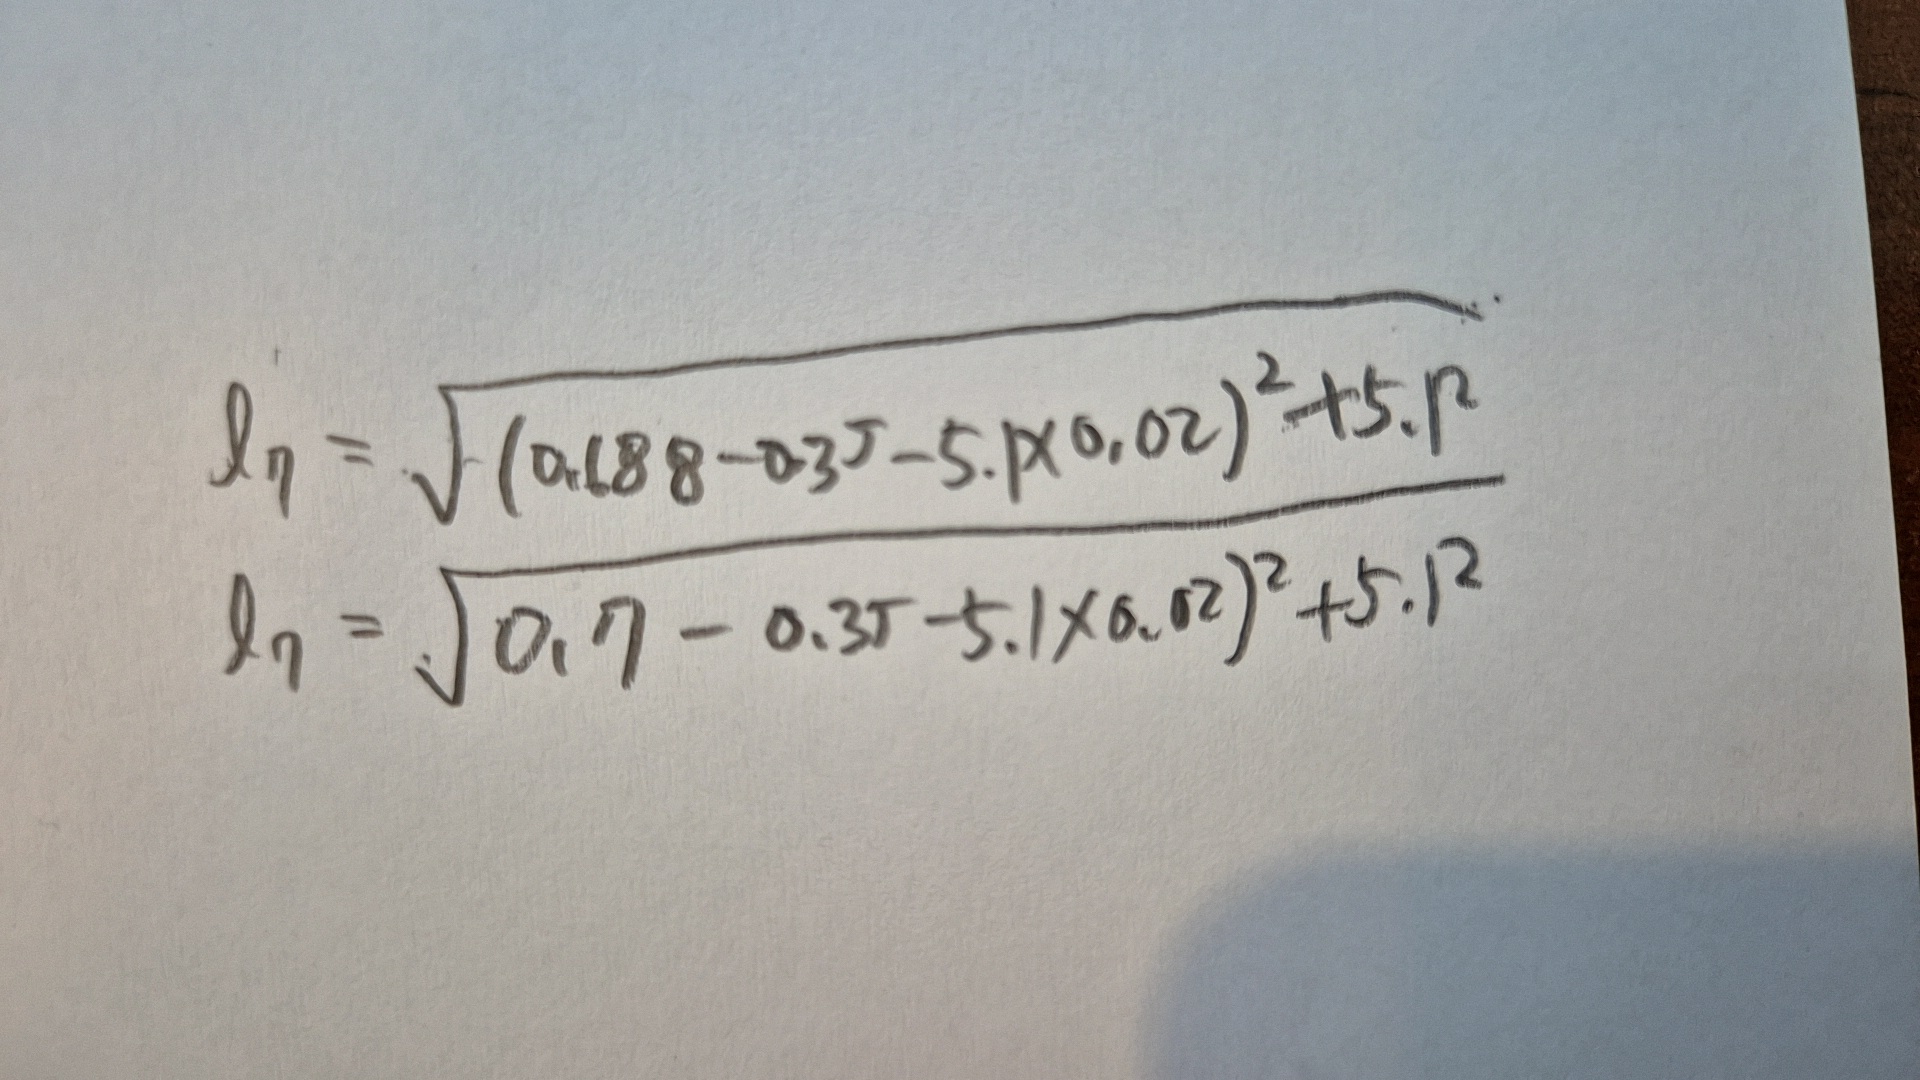 l₇ = √(0.688-0.35-5.1×0.02)²+5.1²
l₇ = √0.7-0.35-5.1×0.02)²+5.1²